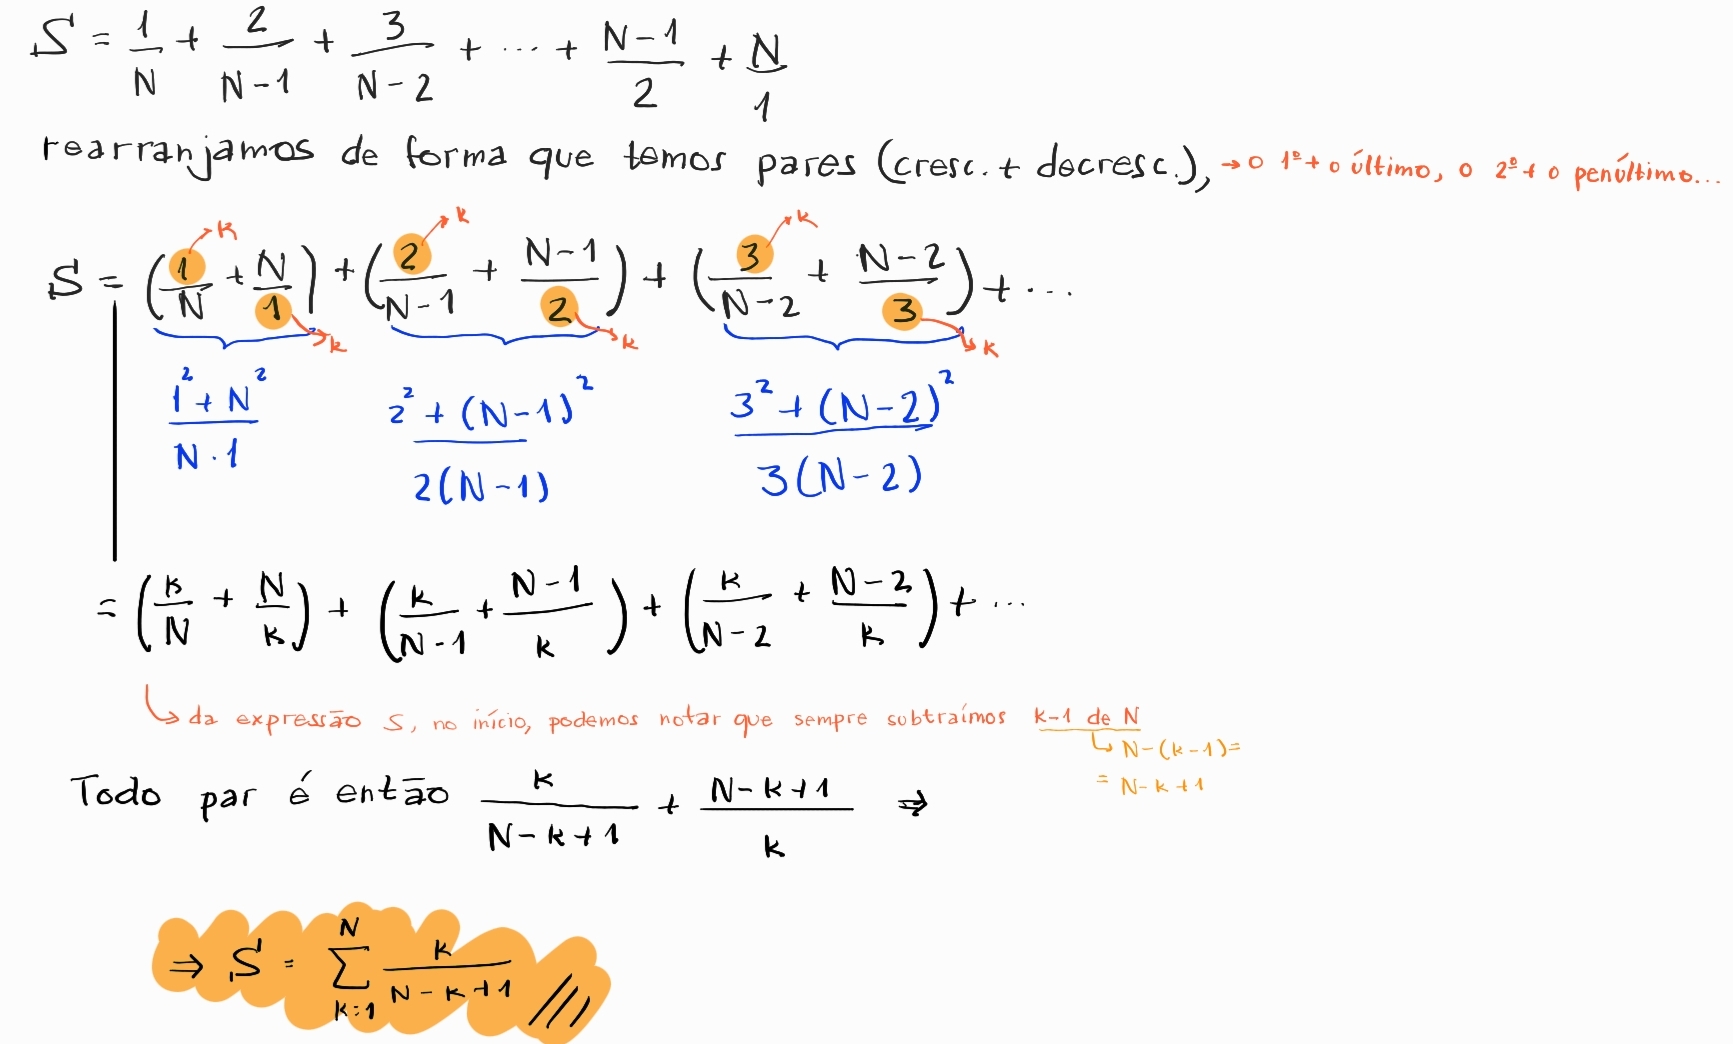 S = 1/N + 2/(N-1) + 3/(N-2) + ... + (N-1)/2 + N/1
rearranjamos de forma que temos pares (cresc. + decresc.), → o 1º + o último, o 2º + o penúltimo...
k k k
S = (1/N + N/1) + (2/(N-1) + (N-1)/2) + (3/(N-2) + (N-2)/3) + ...
k k k
(1² + N²)/(N·1) (2² + (N-1)²)/(2(N-1)) (3² + (N-2)²)/(3(N-2))
= (k/N + N/k) + (k/(N-1) + (N-1)/k) + (k/(N-2) + (N-2)/k) + ...
↳ da expressão S, no início, podemos notar que sempre subtraímos k-1 de N
↳ N-(k-1)=
= N-k+1
Todo par é então k/(N-k+1) + (N-k+1)/k ⇒
⇒ S = ∑_{k=1}^{N} k/(N-k+1) ///